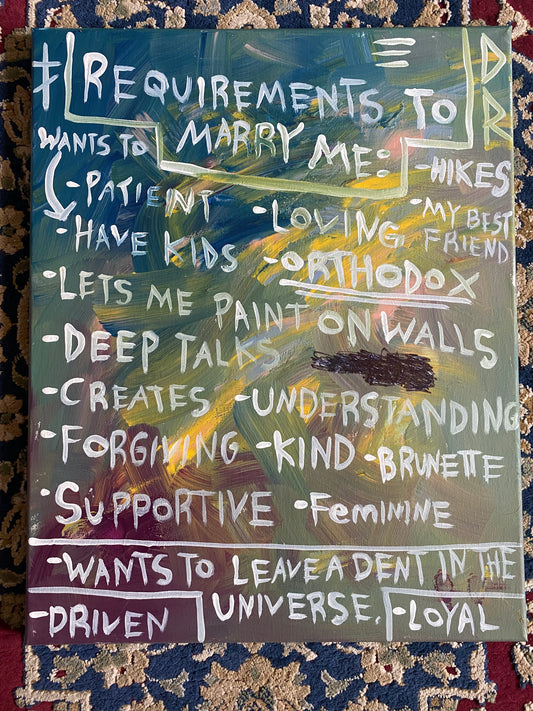 REQUIREMENTS TO
MARRY ME:
DR
-HIKES
WANTS TO
-PATIENT
-HAVE KIDS
-LOVING
-MY BEST
FRIEND
-ORTHODOX
-LETS ME PAINT ON WALLS
-DEEP TALKS
-CREATES -UNDERSTANDING
-FORGIVING -KIND -BRUNETTE
-SUPPORTIVE -FEMININE
-WANTS TO LEAVE A DENT IN THE
UNIVERSE.
-DRIVEN
-LOYAL